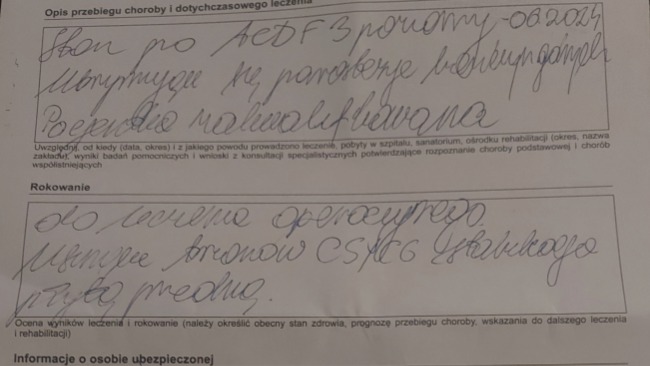 Opis przebiegu choroby i dotychczasowego leczenia
Stan po ACDF 3 poziomy - 06.2024
Utrzymujące się parestezje kończyn górnych
zakwalifikowana
Uwzględnij, od kiedy (data, okres) i z jakiego powodu prowadzono leczenie, pobyty w szpitalu, sanatorium, ośrodku rehabilitacji (okres, nazwa
zakładu), wyniki badań pomocniczych i wnioski z konsultacji specjalistycznych potwierdzające rozpoznanie choroby podstawowej i chorób
współistniejących
Rokowanie
do leczenia operacyjnego.
C5/C6
płytą przednią.
Ocena wyników leczenia i rokowanie (należy określić obecny stan zdrowia, prognozę przebiegu choroby, wskazania do dalszego leczenia
i rehabilitacji)
Informacje o osobie ubezpieczonej